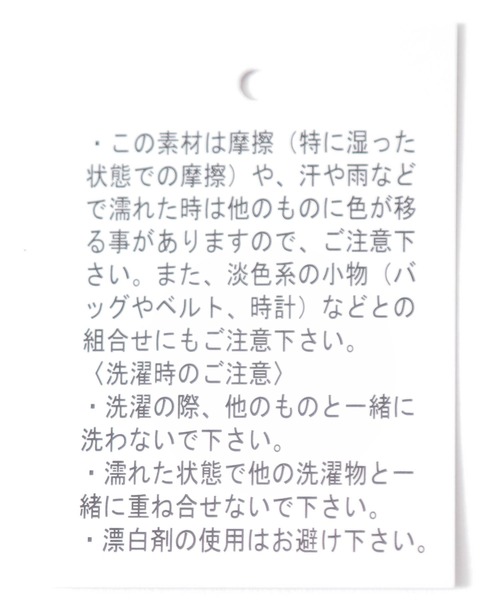 ・この素材は摩擦（特に湿った
状態での摩擦）や、汗や雨など
で濡れた時は他のものに色が移
る事がありますので、ご注意下
さい。また、淡色系の小物（バ
ッグやベルト、時計）などとの
組合せにもご注意下さい。
〈洗濯時のご注意〉
・洗濯の際、他のものと一緒に
洗わないで下さい。
・濡れた状態で他の洗濯物と一
緒に重ね合せないで下さい。
・漂白剤の使用はお避け下さい。